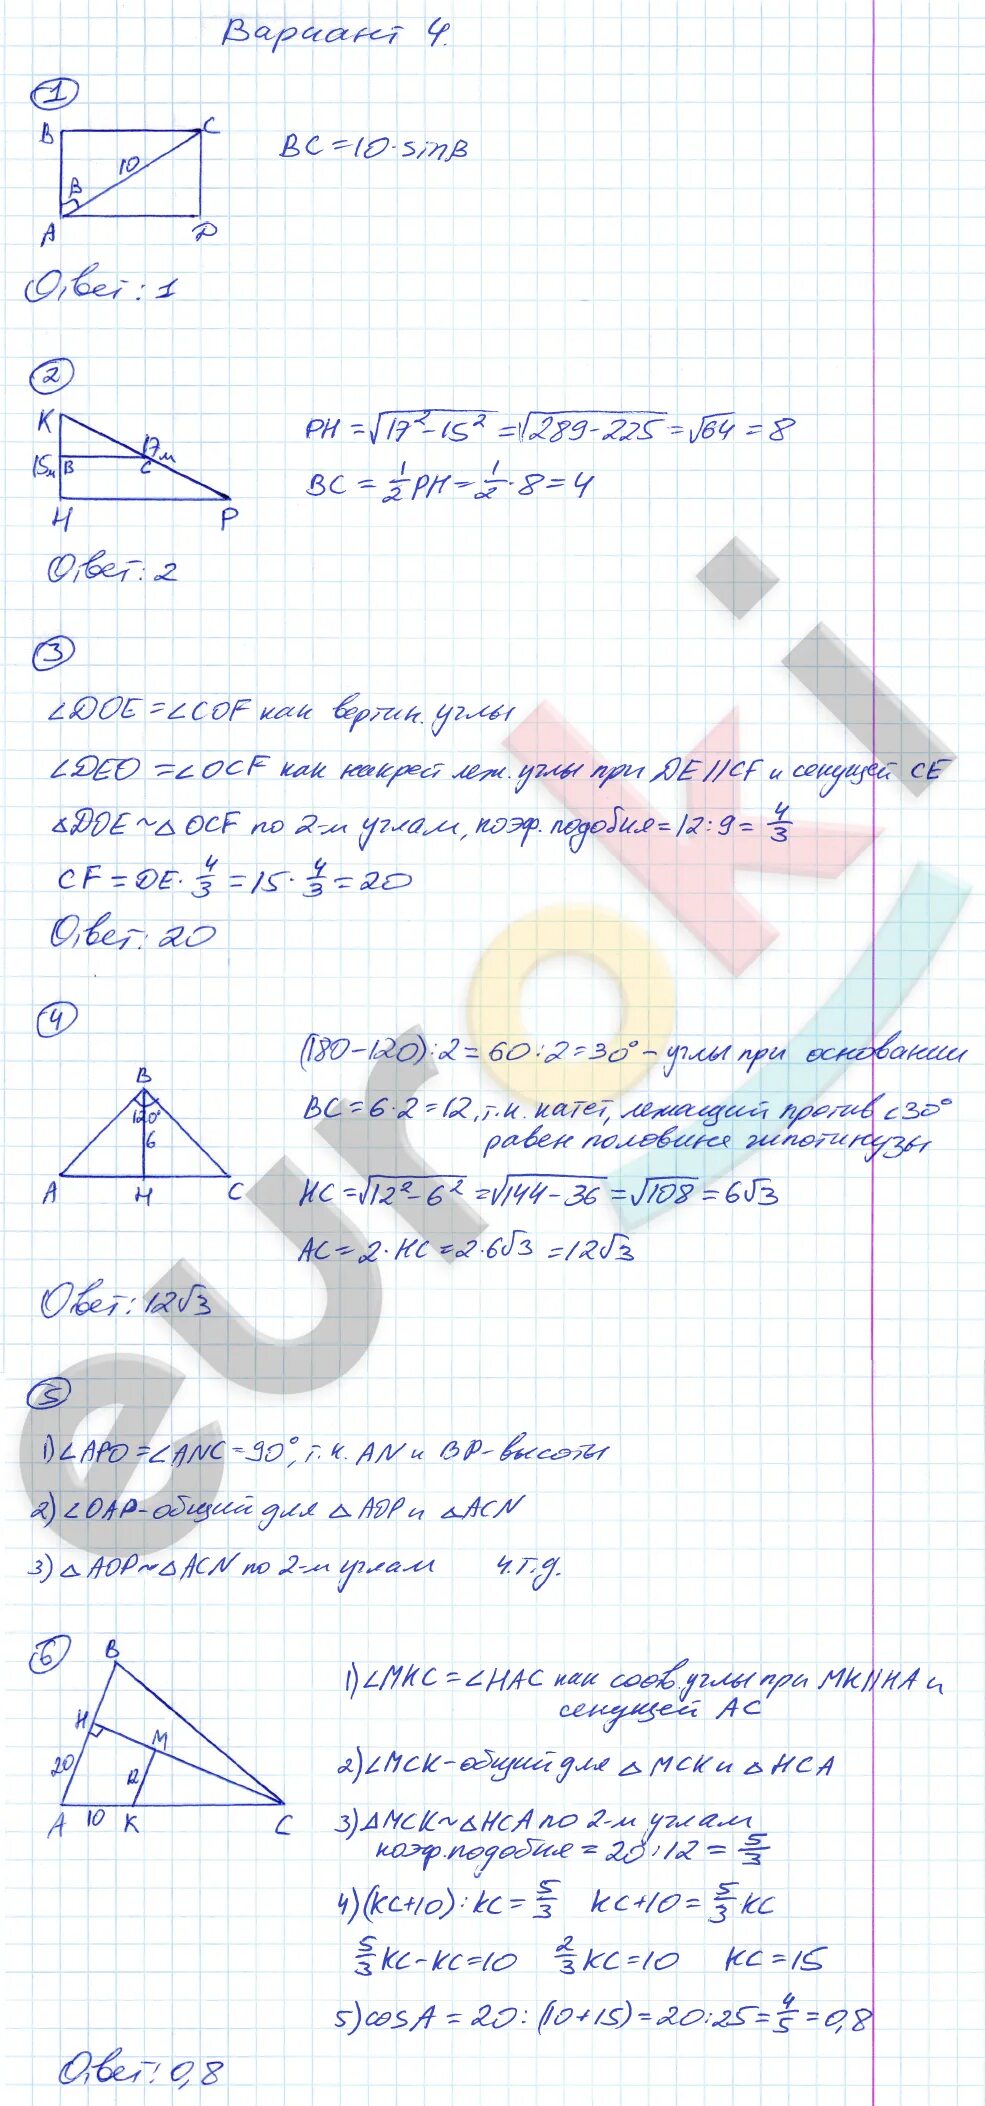 Вариант 4.
1
B C
10
B
A D
BC = 10 · sinB
Ответ: 1
2
K
17м
15м B C
H P
PH = √17² - 15² = √289 - 225 = √64 = 8
BC = 1/2 PH = 1/2 · 8 = 4
Ответ: 2
3
∠DOE = ∠COF как вертик. углы
∠DEO = ∠OCF как накрест леж. углы при DE || CF и секущей CE
△DOE ~ △OCF по 2-м углам, коэф. подобия = 12 : 9 = 4/3
CF = DE · 4/3 = 15 · 4/3 = 20
Ответ: 20
4
B
120°
6
A H C
(180 - 120) : 2 = 60 : 2 = 30° - углы при основании
BC = 6 · 2 = 12, т.к. катет, лежащий против ∠30°
равен половине гипотинузы
HC = √12² - 6² = √144 - 36 = √108 = 6√3
AC = 2 · HC = 2 · 6√3 = 12√3
Ответ: 12√3
5
1) ∠APO = ∠ANC = 90°, т.к. AN и BP - высоты
2) ∠OAP - общий для △AOP и △ACN
3) △AOP ~ △ACN по 2-м углам ч.т.д.
6
B
H
M
20
12
A 10 K C
1) ∠MKC = ∠HAC как соотв. углы при MK || HA и
секущей AC
2) ∠MCK - общий для △MCK и △HCA
3) △MCK ~ △HCA по 2-м углам
коэф. подобия = 20 : 12 = 5/3
4) (KC + 10) : KC = 5/3 KC + 10 = 5/3 KC
5/3 KC - KC = 10 2/3 KC = 10 KC = 15
5) cosA = 20 : (10 + 15) = 20 : 25 = 4/5 = 0,8
Ответ: 0,8
euroki